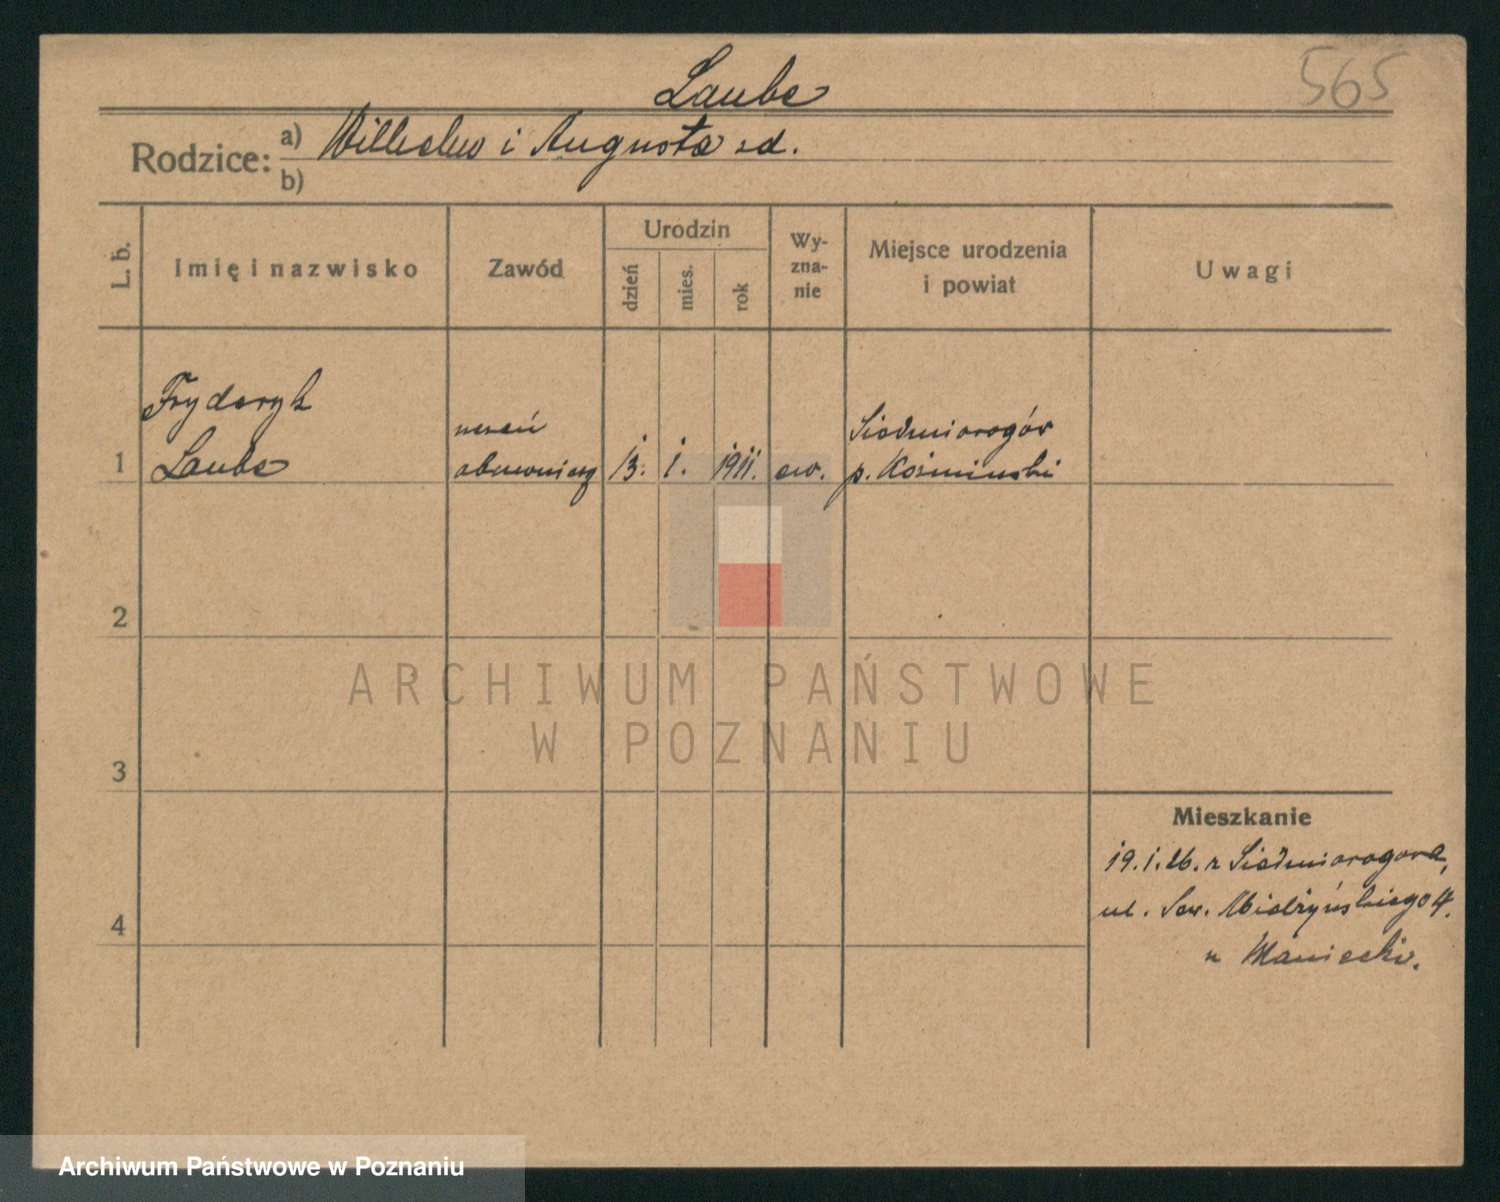 565
Laube
Rodzice: a) Wilhelm i Augusta zd.
b)
L. b.
Imię i nazwisko
Zawód
Urodzin
dzień
mies.
rok
Wy-
zna-
nie
Miejsce urodzenia
i powiat
Uwagi
Fryderyk
uczeń
Siedmiorogów
1 Laube obuwniczy 13. 1. 1911. ew. p. Koźmiński
2
3
4
Mieszkanie
19.1.26. z Siedmiorogowa,
ul. Sew. Mielżyńskiego 4.
u Maniecki.
ARCHIWUM PAŃSTWOWE
W POZNANIU
Archiwum Państwowe w Poznaniu